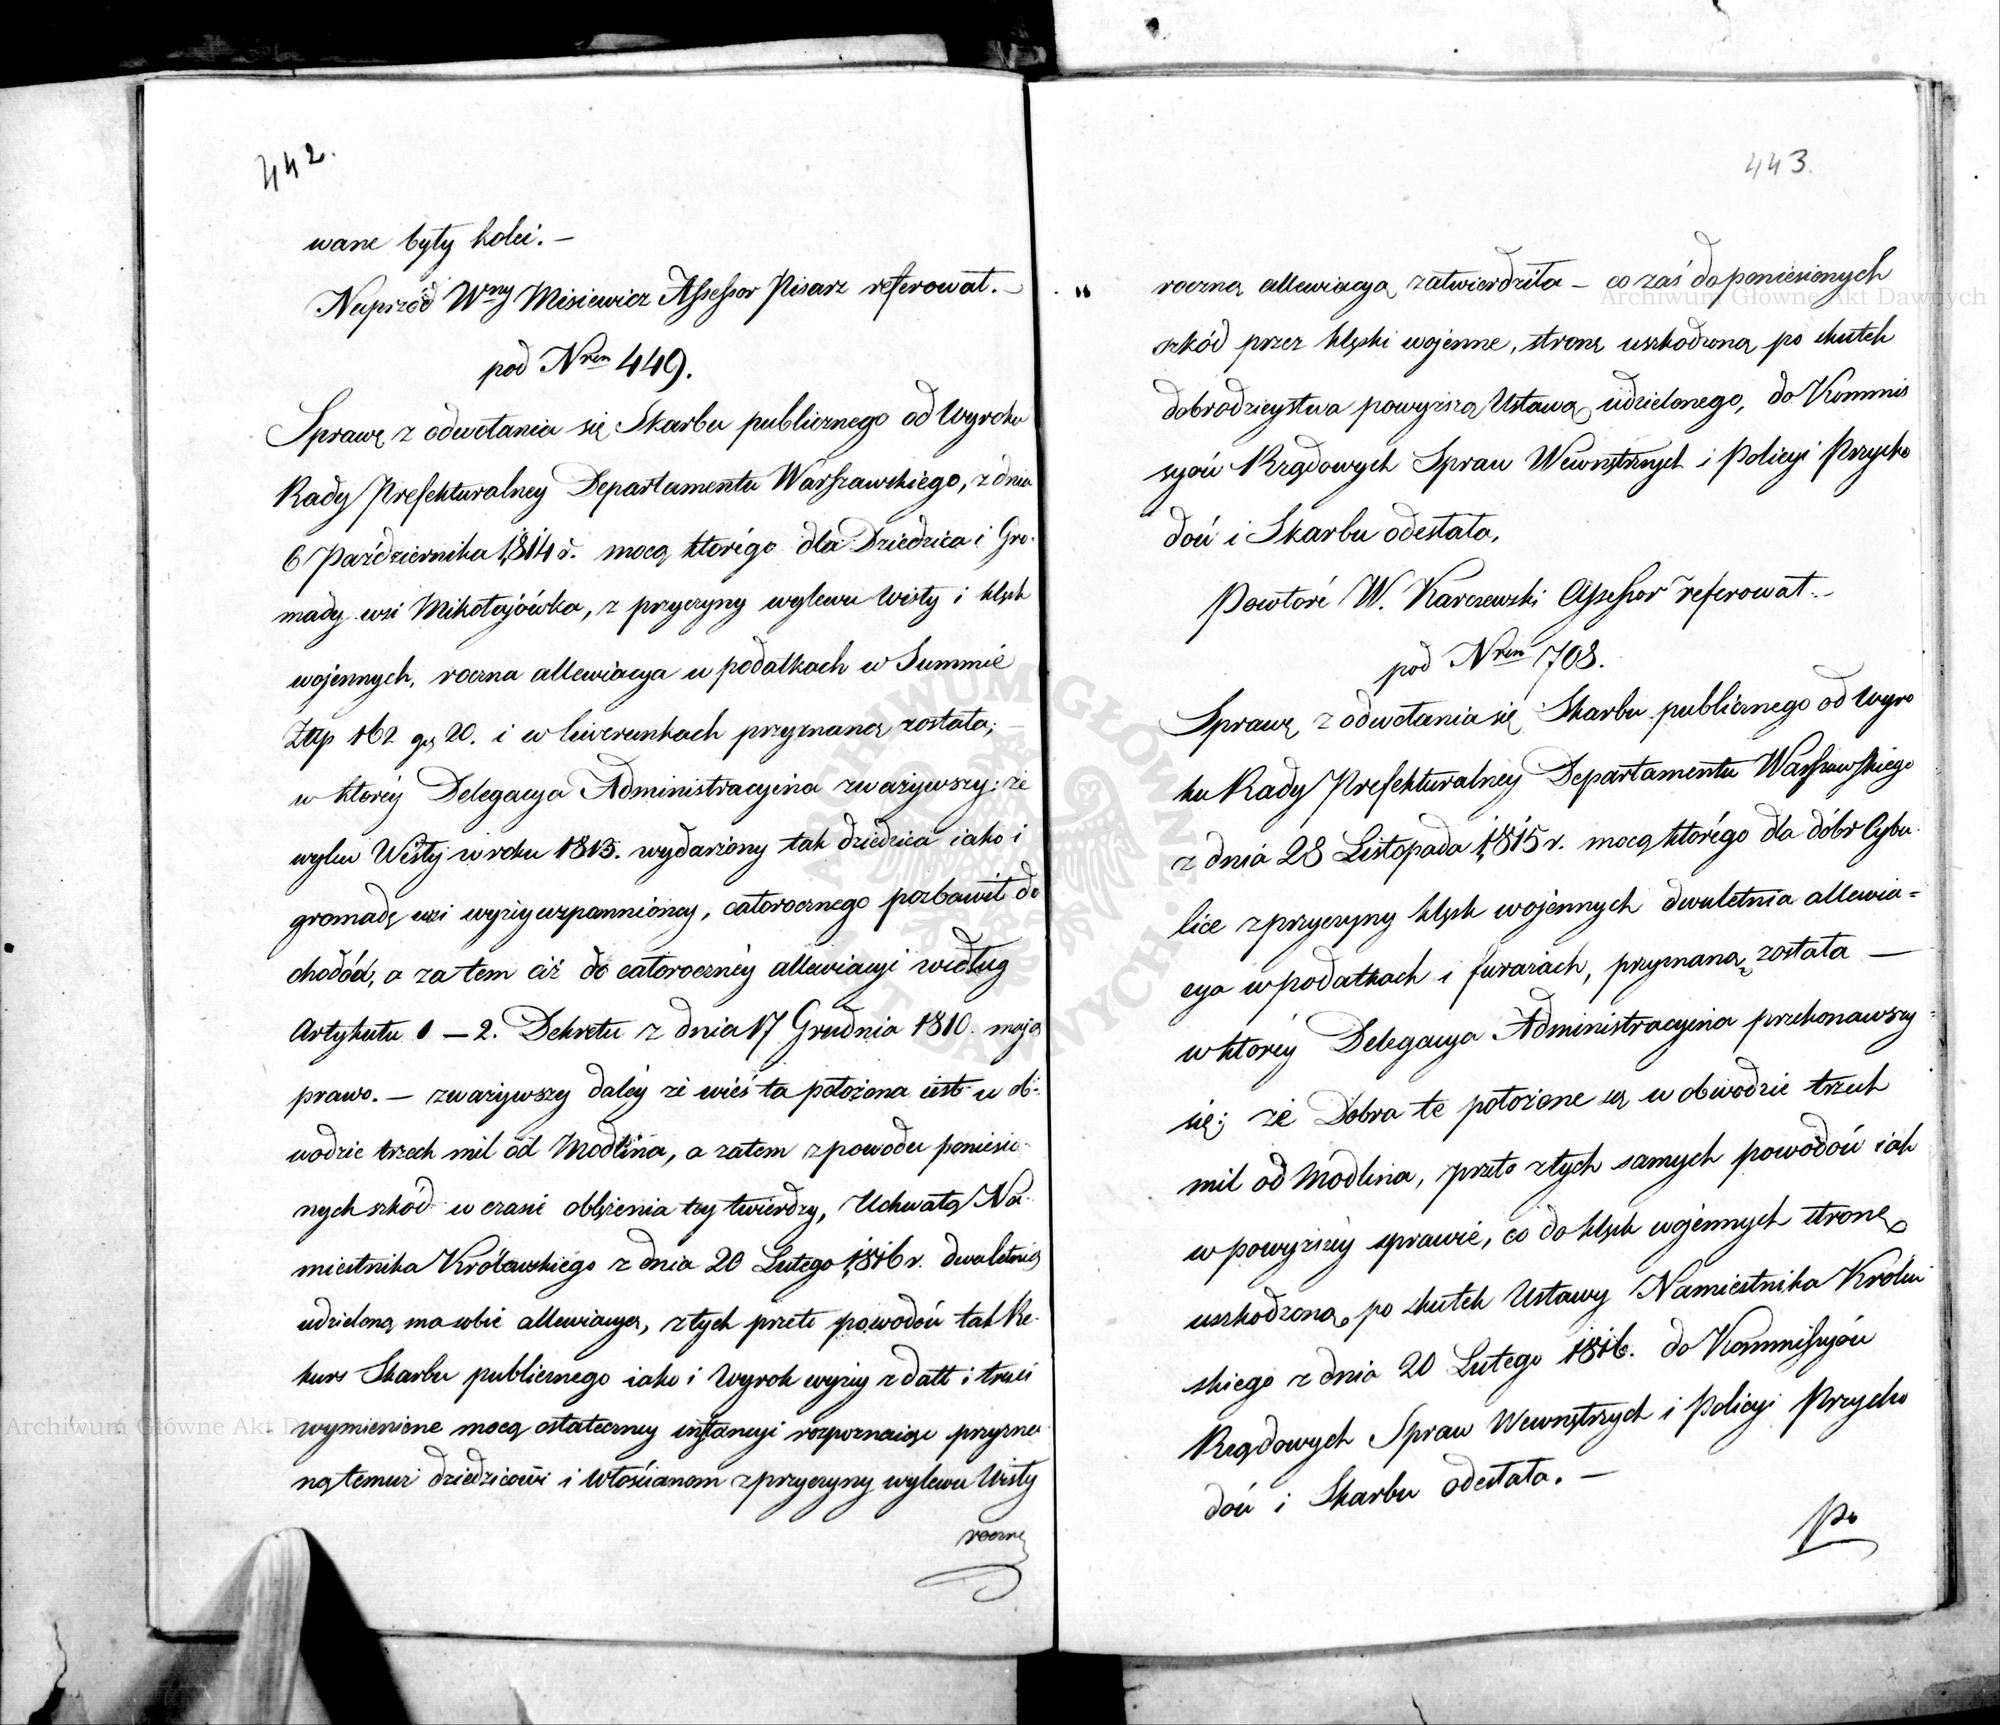 442.
wane były kolei. —
Naprzód Wny Misiewicz Assessor Pisarz referował. —
pod Nrem 449.
Sprawę z odwołania się Skarbu publicznego od Wyroku
Rady Prefekturalney Departamentu Warszawskiego, z dnia
6 Października 1814 r. mocą którégo dla Dziedzica i Gro-
mady wsi Mikołajówka, z przyczyny wylewu Wisły i klęsk
wojennych, roczna allewiacya w podatkach w Summie
Złtp 162 gr 20. i w liwerunkach przyznaną została;
w któréy Delegacya Administracyina zważywszy: że
wylew Wisły w roku 1813. wydarzony tak dziedzica iako i
gromadę wsi wyżey wspomnioney, całorocznego pozbawił do
chodód, a zatem iż do całorocznéy allewiacyi według
Artykułu 1 — 2. Dekretu z dnia 17 Grudnia 1810. mają
prawo. — zważywszy daléy że wieś ta położona iest w ob-
wodzie trzech mil od Modlina, a zatem z powodu poniesio-
nych szkód w czasie oblężenia téy twierdzy, Uchwałą Na-
miestnika Królewskiego z dnia 20 Lutego 1816 r. dwuletnią
udzieloną ma sobie allewiacyą, z tych przeto powodów tak Re-
kurs Skarbu publicznego iako i Wyrok wyżey z datt i treści
wymienione mocą ostateczney instancyi rozpoznaiąc przyzna-
ną temuż dziedzicowi i Włościanom z przyczyny wylewu Wisły
roczną
443.
„ roczną allewiacyą zatwierdziła — co zaś do poniesionych
szkód przez klęski wojenne, stronę uszkodzoną po skutek
dobrodzieystwa powyższą Ustawą udzielonego, do Kommis
syów Rządowych Spraw Wewnętrznych i Policyi Przycho
dów i Skarbu odesłała.
Powtóré W. Karczewski Assessor referował. —
pod Nrem 708.
Sprawę z odwołania się Skarbu publicznego od Wyro
ku Rady Prefekturalney Departamentu Warszawskiego
z dnia 28 Listopada 1815 r. mocą którégo dla dóbr Cybu-
lice z przyczyny klęsk wojennych dwuletnia allewia=
cya w podatkach i furażach, przyznaną została —
w któréy Delegacya Administracyina przekonawszy
się; że Dobra te położone są w obwodzie trzech
mil od Modlina, przeto z tych samych powodów iak
w powyższéy sprawie, co do klęsk wojennych stronę
uszkodzoną po skutek Ustawy Namiestnika Królew
skiego z dnia 20 Lutego 1816. do Kommissyów
Rządowych Spraw Wewnętrznych i Policyi Przycho
dów i Skarbu odesłała. —
Po
Archiwum Główne Akt Dawnych